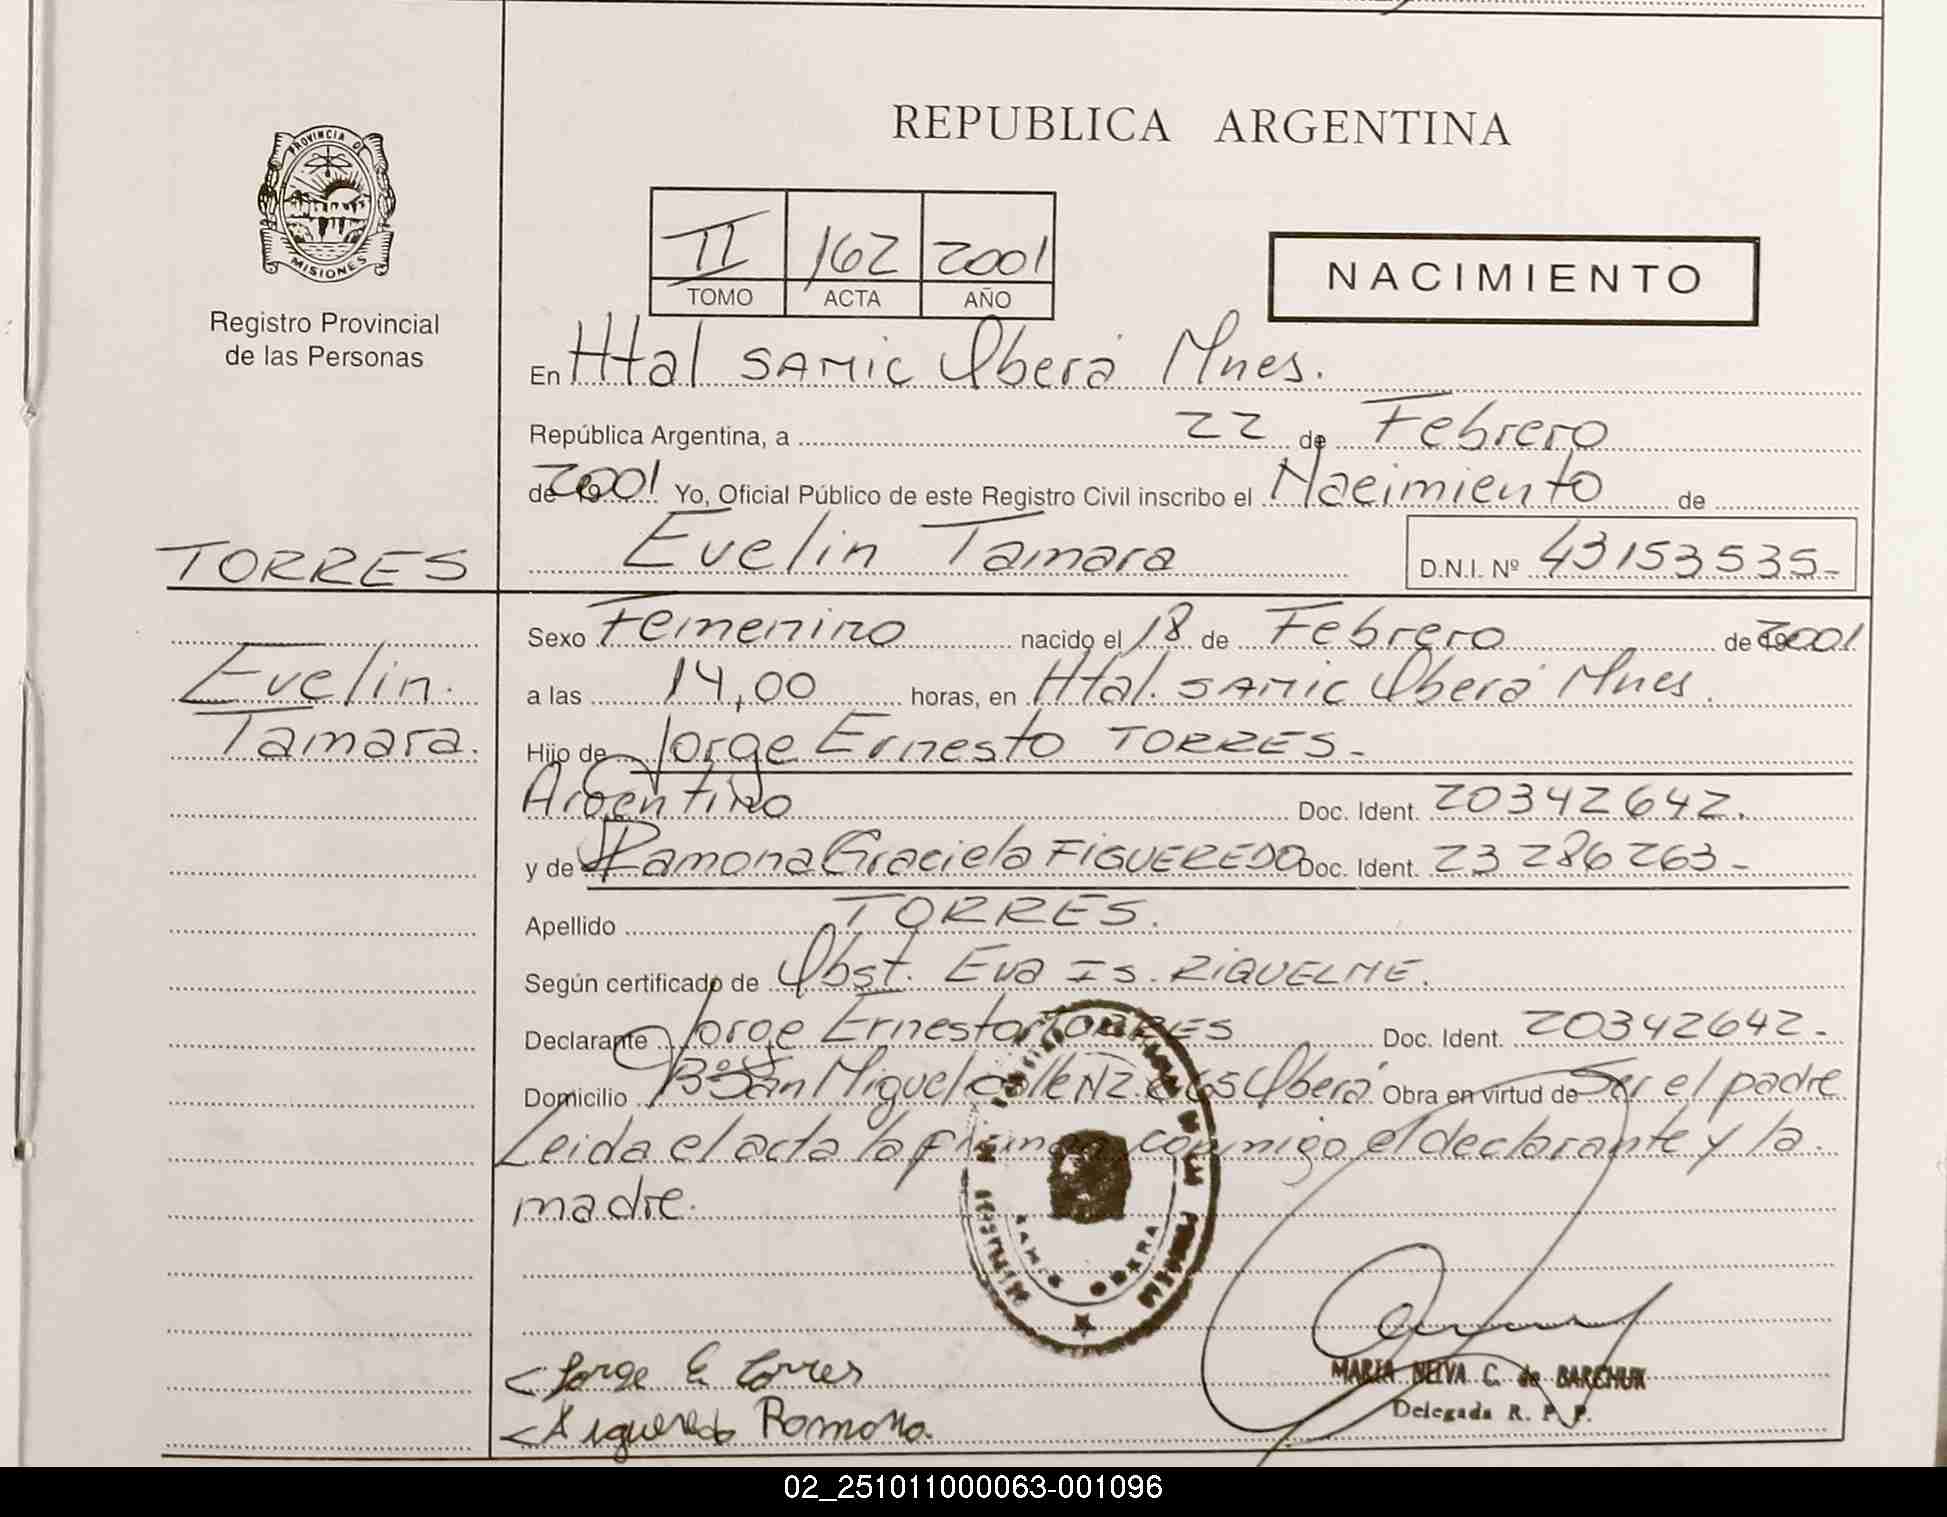 REPUBLICA ARGENTINA
PROVINCIA DE
MISIONES
Registro Provincial
de las Personas
II 162 2001
TOMO ACTA AÑO
NACIMIENTO
En Htal SAMIC Oberá Mnes.
República Argentina, a 22 de Febrero
de 2001 Yo, Oficial Público de este Registro Civil inscribo el Nacimiento de
Evelin Tamara D.N.I. Nº 43153535-
TORRES
Evelin.
Tamara.
Sexo Femenino nacido el 18 de Febrero de 2001
a las 14,00 horas, en Htal. SAMIC Oberá Mnes.
Hijo de Jorge Ernesto TORRES-
Argentino Doc. Ident. 20342642.
y de Ramona Graciela FIGUEREDO Doc. Ident. 23286263-
Apellido TORRES.
Según certificado de Obst. Eva Is. RIQUELME.
Declarante Jorge Ernesto TORRES Doc. Ident. 20342642-
Domicilio Bº San Miguel calle Nº2 Oberá Obra en virtud de Ser el padre
Leida el acta la firman conmigo el declarante y la
madre.
SAMIC OBERA
Jorge E Torres
Figueredo Ramona.
MARIA NELVA C. de BARCHUK
Delegada R. P. P.
02_251011000063-001096